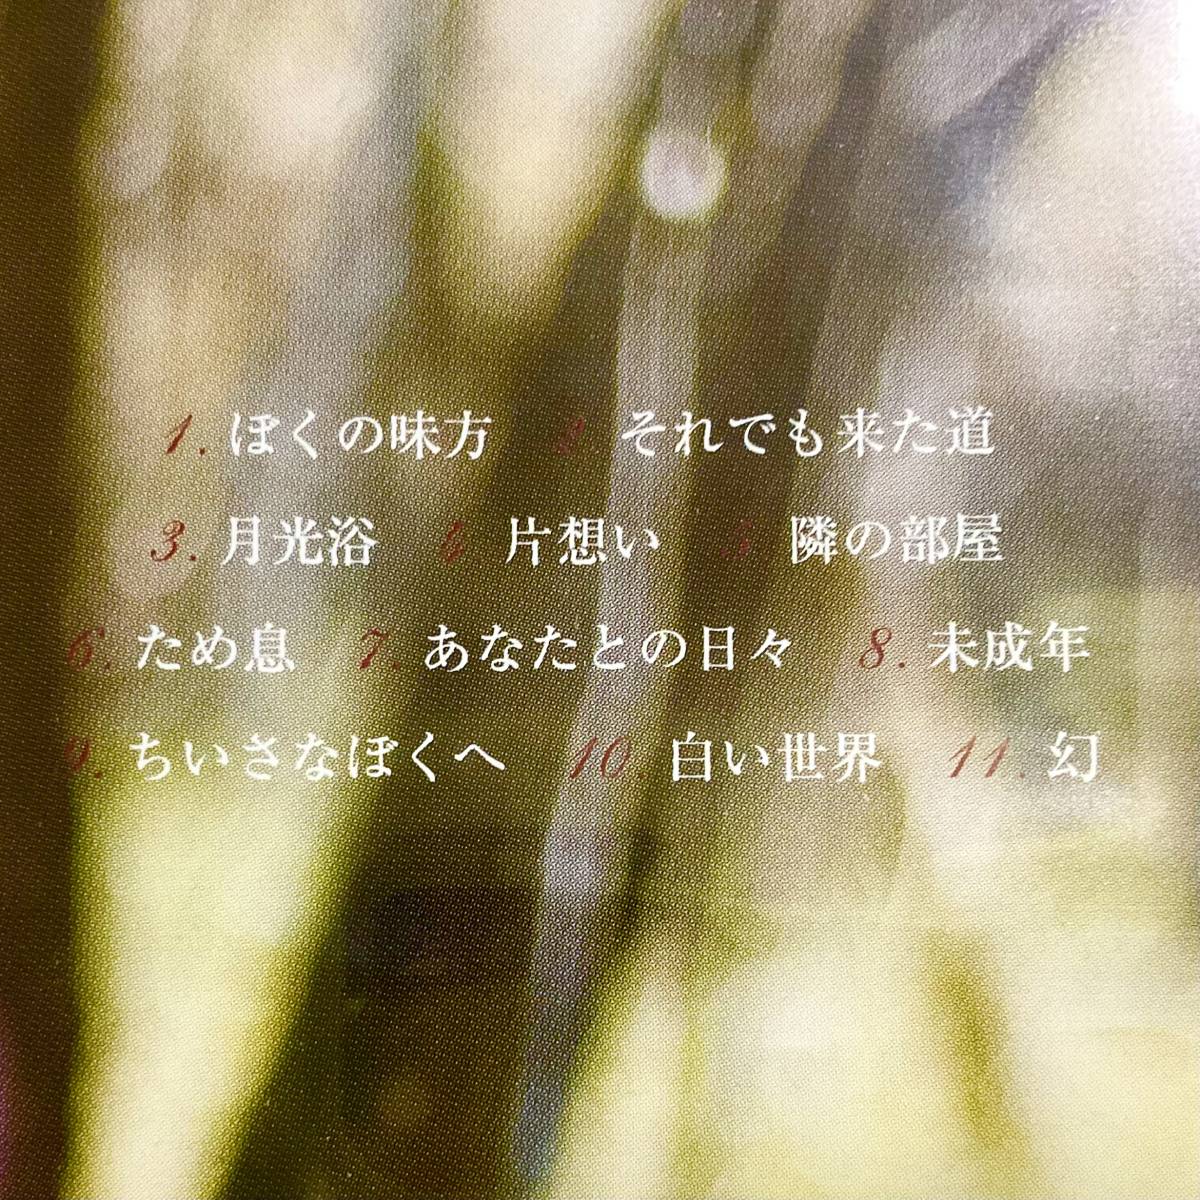 1. ぼくの味方 2. それでも来た道
3. 月光浴 4. 片想い 5. 隣の部屋
6. ため息 7. あなたとの日々 8. 未成年
9. ちいさなぼくへ 10. 白い世界 11. 幻